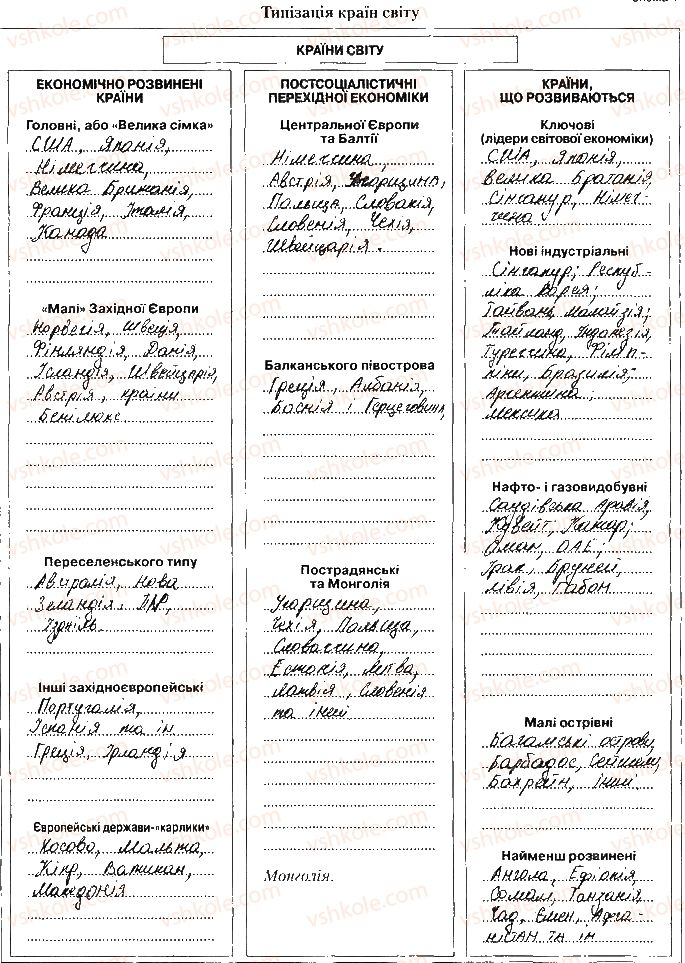 Типізація країн світу
КРАЇНИ СВІТУ
ЕКОНОМІЧНО РОЗВИНЕНІ
КРАЇНИ
Головні, або «Велика сімка»
США, Японія,
Німеччина,
Велика Британія,
Франція, Італія,
Канада
«Малі» Західної Європи
Норвегія, Швеція,
Фінляндія, Данія,
Ісландія, Швейцарія,
Австрія, країни
Бенілюкс
Переселенського типу
Австралія, Нова
Зеландія, ПАР,
Ізраїль
Інші західноєвропейські
Португалія,
Іспанія та ін
Греція, Ірландія
Європейські держави-«карлики»
Косово, Мальта,
Кіпр, Ватикан,
Македонія
ПОСТСОЦІАЛІСТИЧНІ
ПЕРЕХІДНОЇ ЕКОНОМІКИ
Центральної Європи
та Балтії
Німеччина,
Австрія, Угорщина,
Польща, Словакія,
Словенія, Чехія,
Швейцарія.
Балканського півострова
Греція, Албанія,
Боснія і Герцеговина,
Пострадянські
та Монголія
Угорщина,
Чехія, Польща,
Словаччина,
Естонія, Литва,
Латвія, Словенія
та інші
Монголія.
КРАЇНИ,
ЩО РОЗВИВАЮТЬСЯ
Ключові
(лідери світової економіки)
США, Японія,
Велика Братанія,
Сінгапур, Німеч-
чена
Нові індустріальні
Сінгапур; Респуб-
ліка Корея;
Тайвань, Малайзія;
Таїланд, Індонезія,
Туреччина, Філіп-
піни, Бразилія;
Аргентина;
Мексика
Нафто- і газовидобувні
Саудівська Аравія,
Кувейт, Катар,
Оман, ОАЕ,
Ірак, Бруней,
Лівія, Габон
Малі острівні
Багамські острови,
Барбадос, Сейшели,
Бахрейн, інші
Найменш розвинені
Ангола, Ефіопія,
Сомалі, Танзанія,
Чад, Ємен, Афга-
ністан та ін
vshkole.com